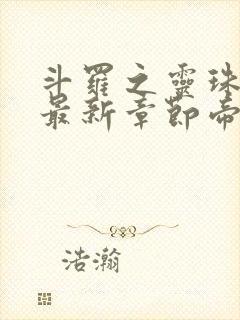 斗羅之靈珠
最新章節帝
浩瀚